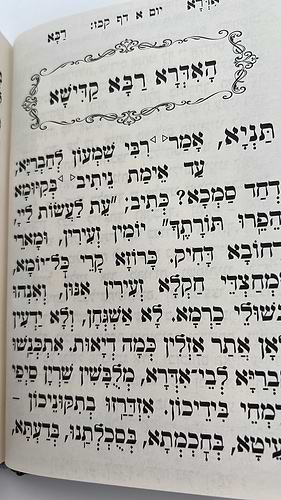 אדרא יום א דף קכז: רבא
הָאִדְּרָא רַבָּא קַדִּישָׁא
תַּנְיָא, אָמַר רִבִּי שִׁמְעוֹן לְחַבְרַיָּיא,
עַד אֵימַת נֵיתִיב בְּקִיּוּמָא
דְּחַד סַמְכָא? כְּתִיב: "עֵת לַעֲשׂוֹת לַיְיָ,
הֵפֵרוּ תּוֹרָתֶךָ". יוֹמִין זְעִירִין, וּמָארֵי
דְּחוֹבָא דָּחִיק. כָּרוֹזָא קָרֵי כָּל־יוֹמָא,
וּמְחַצְדֵי חַקְלָא זְעִירִין אִנּוּן, וְאִנְהוּ
בְּשׁוּלֵי כַרְמָא. לָא אַשְׁגְּחָן, וְלָא יַדְעִין
לְאָן אֲתַר אָזְלִין כְּמָה דְיָאוּת. אִתְכַּנְּשׁוּ
חַבְרַיָּא לְבֵי־אִדְּרָא, מְלֻבָּשִׁין שִׁרְיָן סַיְפֵי
וְרָמְחֵי בִּידֵיכוֹן. אִזְדָּרְזוּ בְּתִקּוּנֵיכוֹן –
בְּעֵיטָא, בְּחָכְמְתָא, בְּסָכְלְתָנוּ, בְּדַעְתָּא,